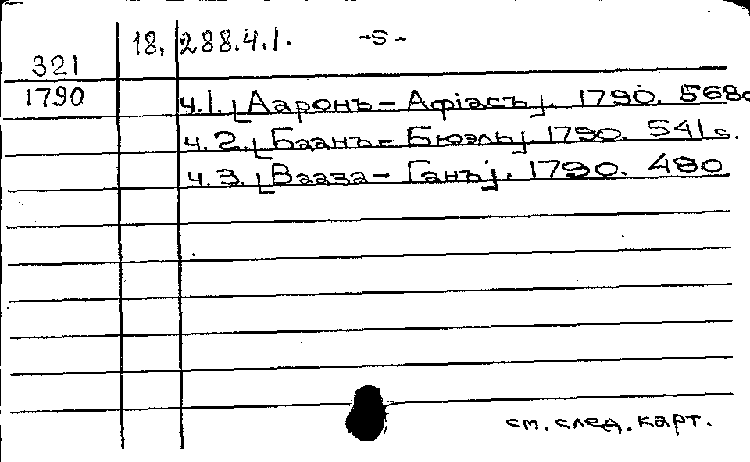 18.288.4.1. -5-
321
1790
ч.1.[Ааронъ - Афіасъ]. 1790. 568с
ч.2.[Баанъ - Бюэль] 1790. 541 с.
ч.3.[Вааза - Ганъ]. 1790. 480
см. след. карт.